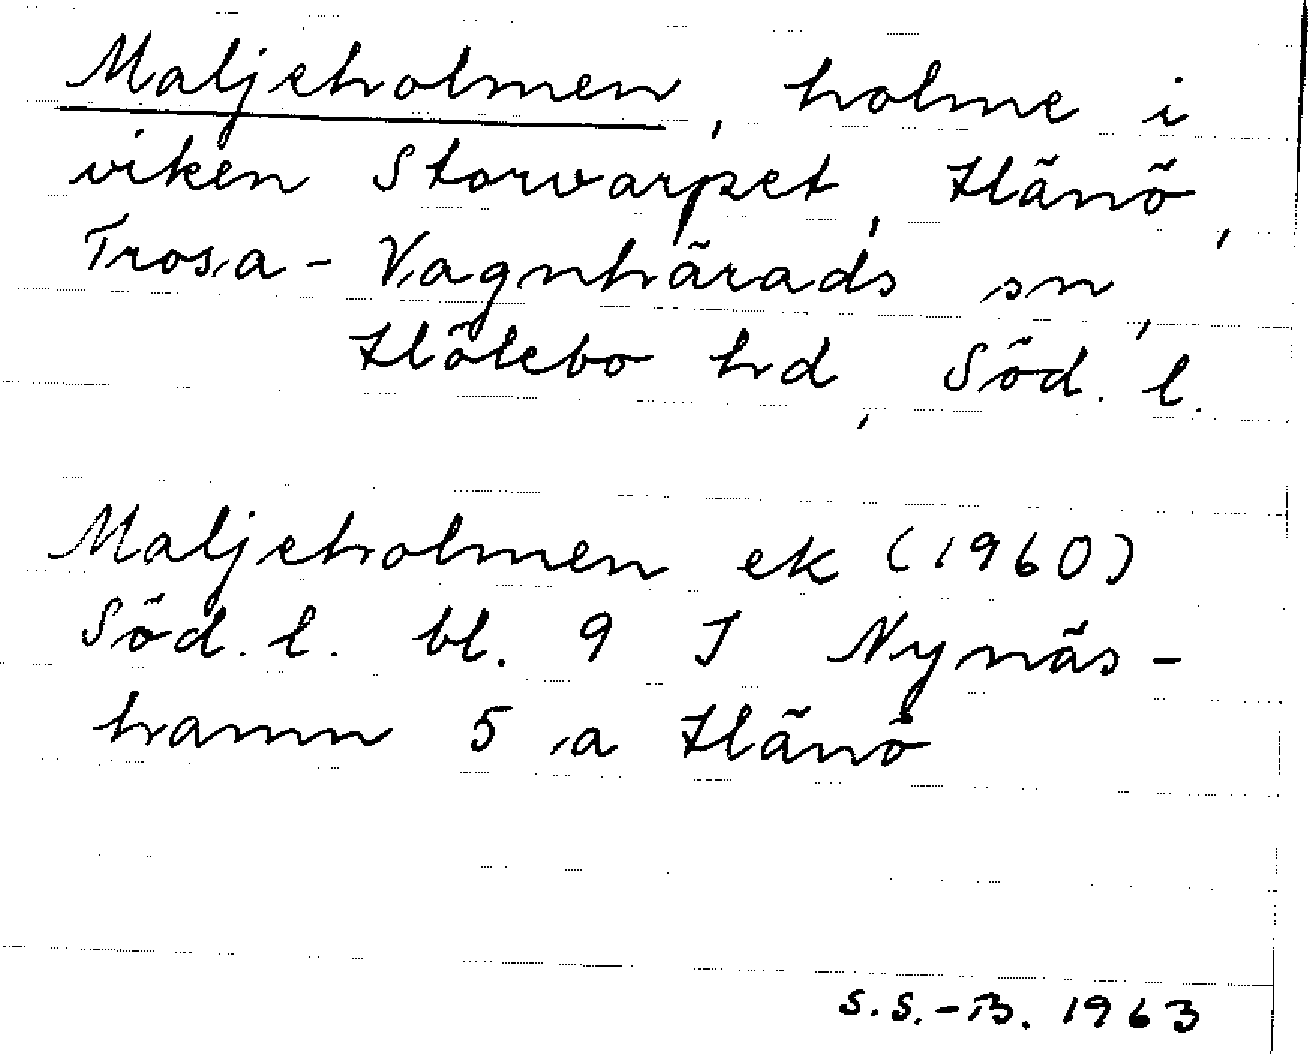 Maljeholmen, holme i
viken Storvarpet, Hänö,
Trosa-Vagnhärads sn,
Hölebo hd, Söd. l.
Maljeholmen ek (1960)
Söd. l. bl. 9 J Nynäs-
hamn 5 a Hänö
S.S.-B. 1963